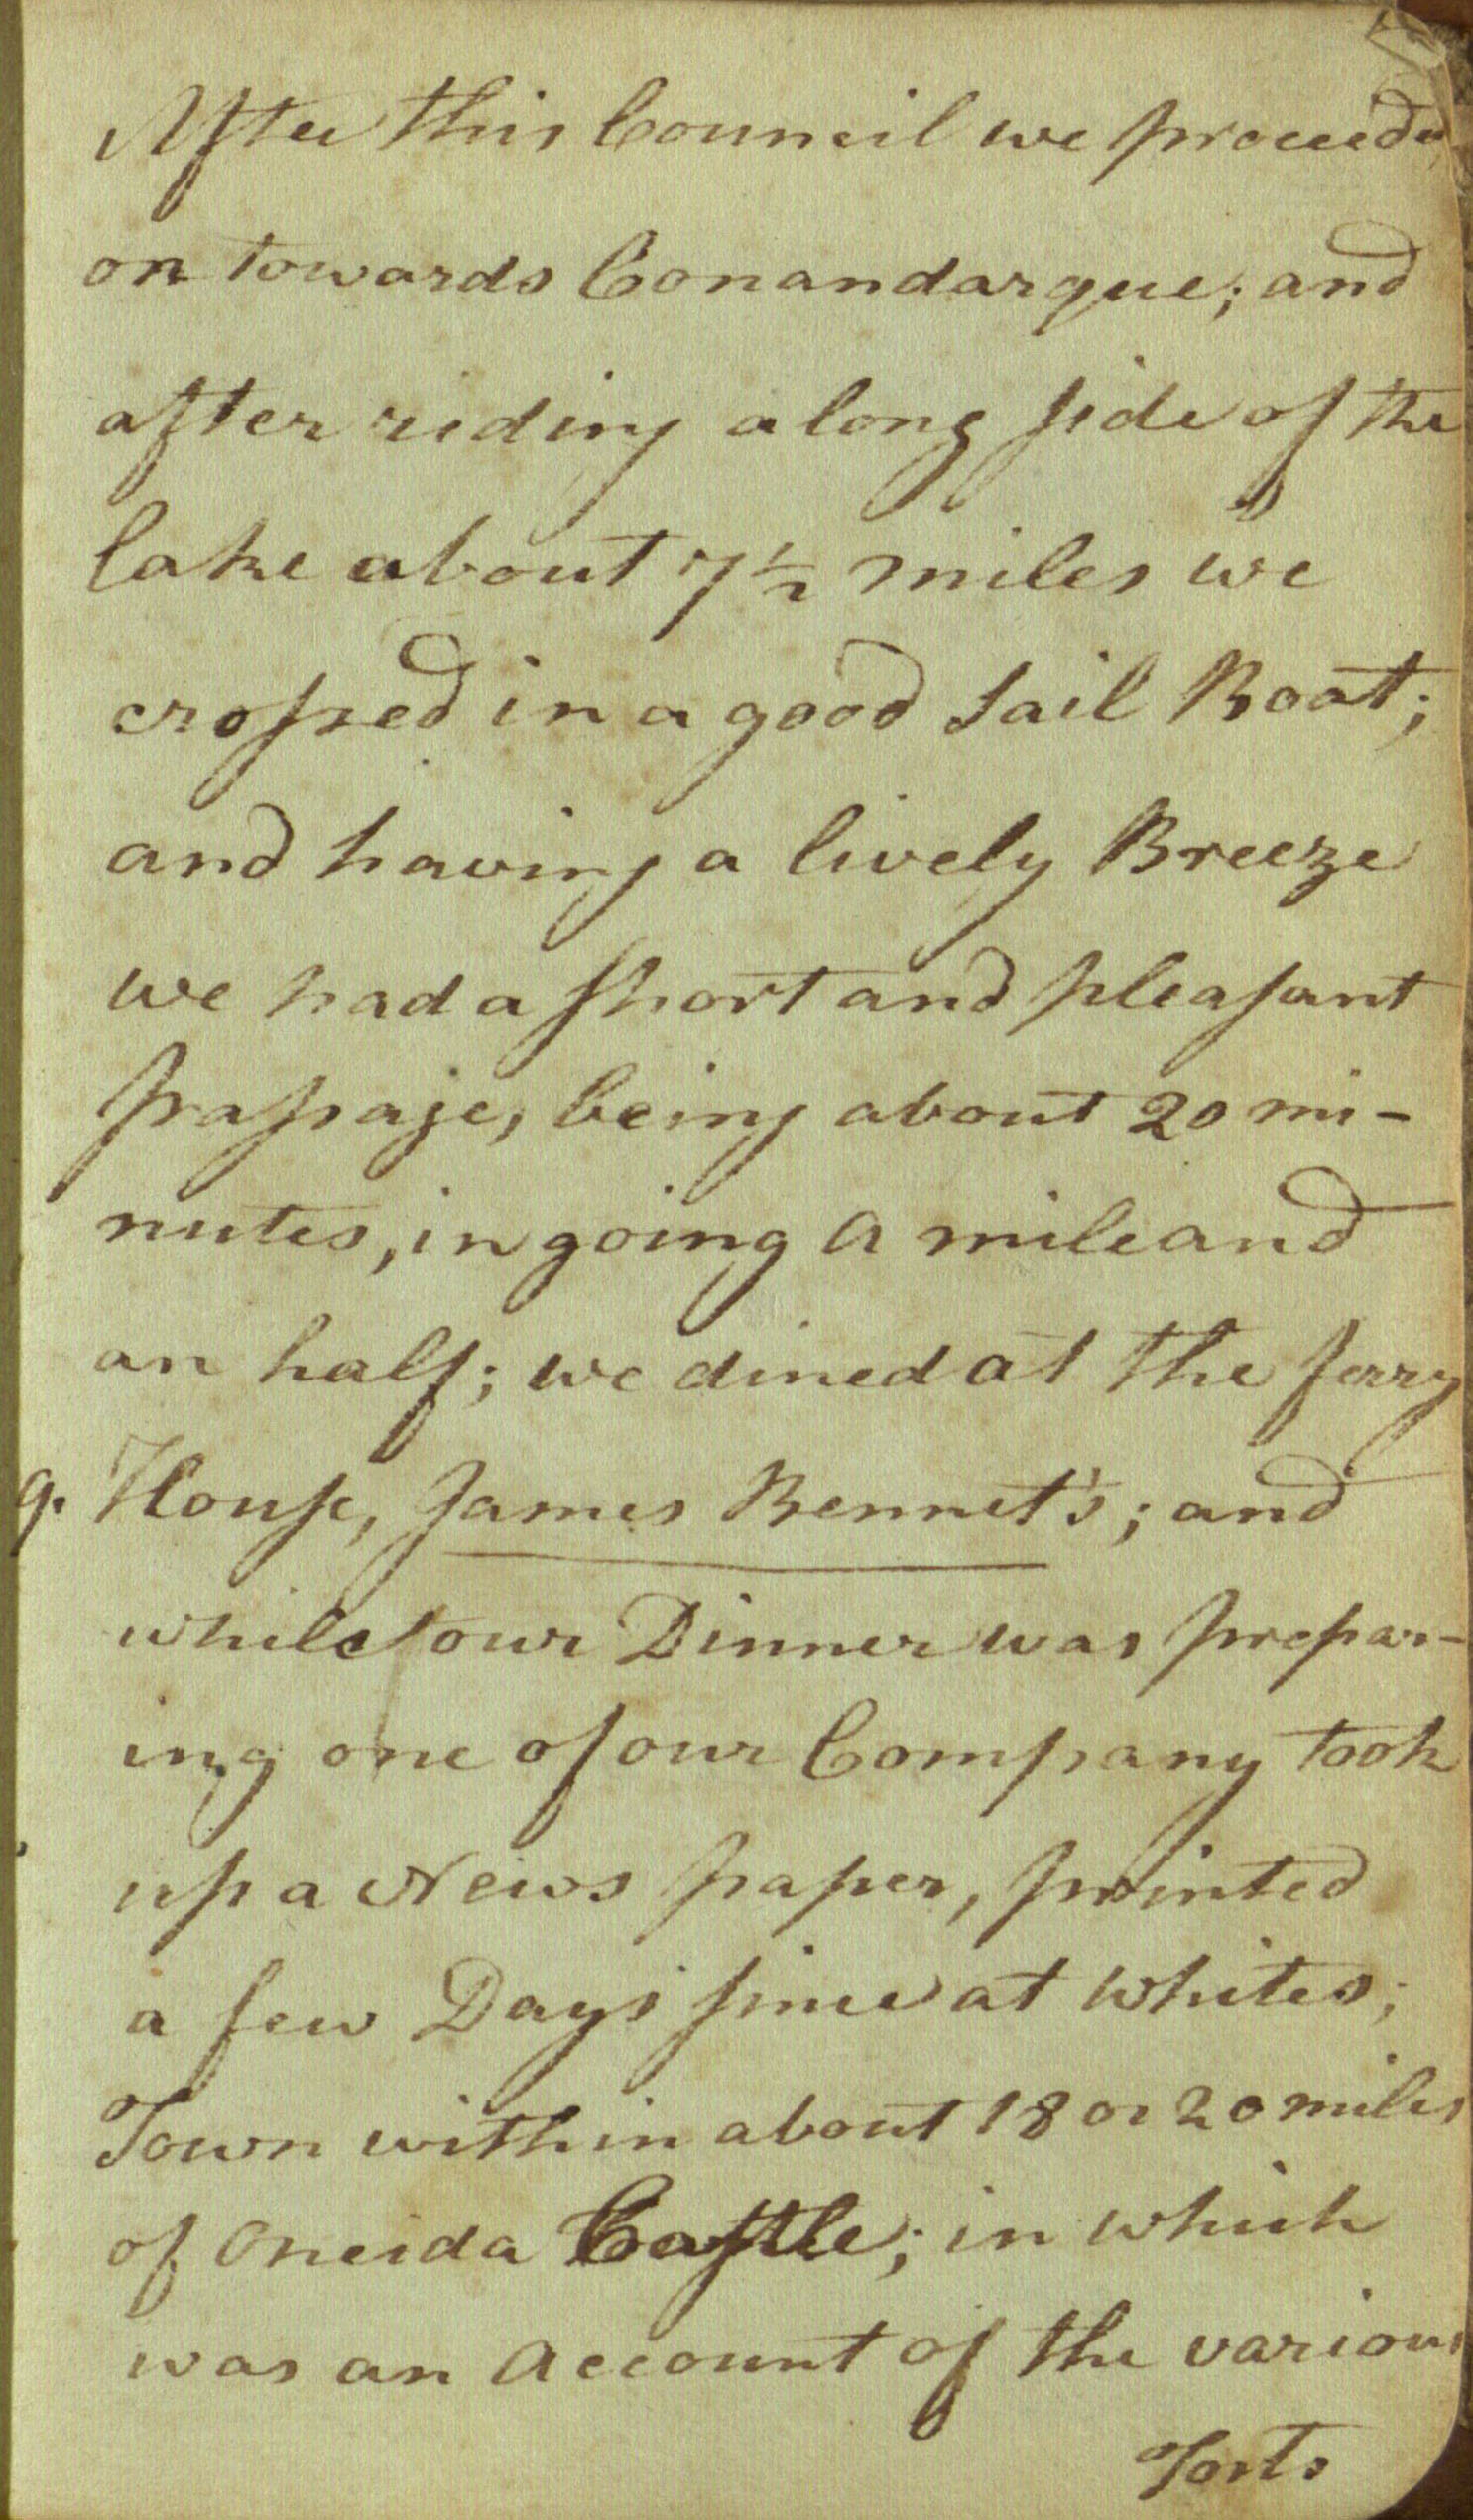 After this Council we proceeded
on towards Conandarque; and
after riding along side of the
lake about 7½ miles we
crossed in a good Sail Boat;
and having a lively Breeze
we had a short and pleasant
passage, being about 20 mi-
nutes, in going a mile and
an half; we dined at the ferry
9. House, James Bennet's; and
whilst our Dinner was prepar-
ing one of our Company took
up a News paper, printed
a few Days since at Whites;
Town within about 18 or 20 miles
of Oneida Castle; in which
was an Account of the various